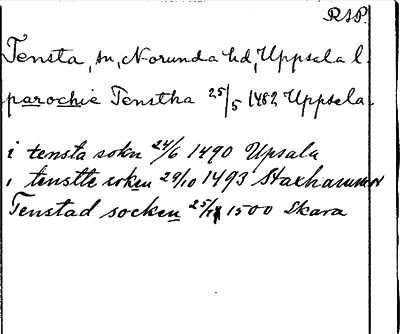 RAP.
Tensta, sn, Norunda hd, Uppsala l.
parochie Tenstha 25/5 1482 Uppsala.
i tensta sokn 24/6 1490 Upsala
i tenstte soken 29/10 1493 Staxhammar
Tenstad socken 25/ 1500 Skara